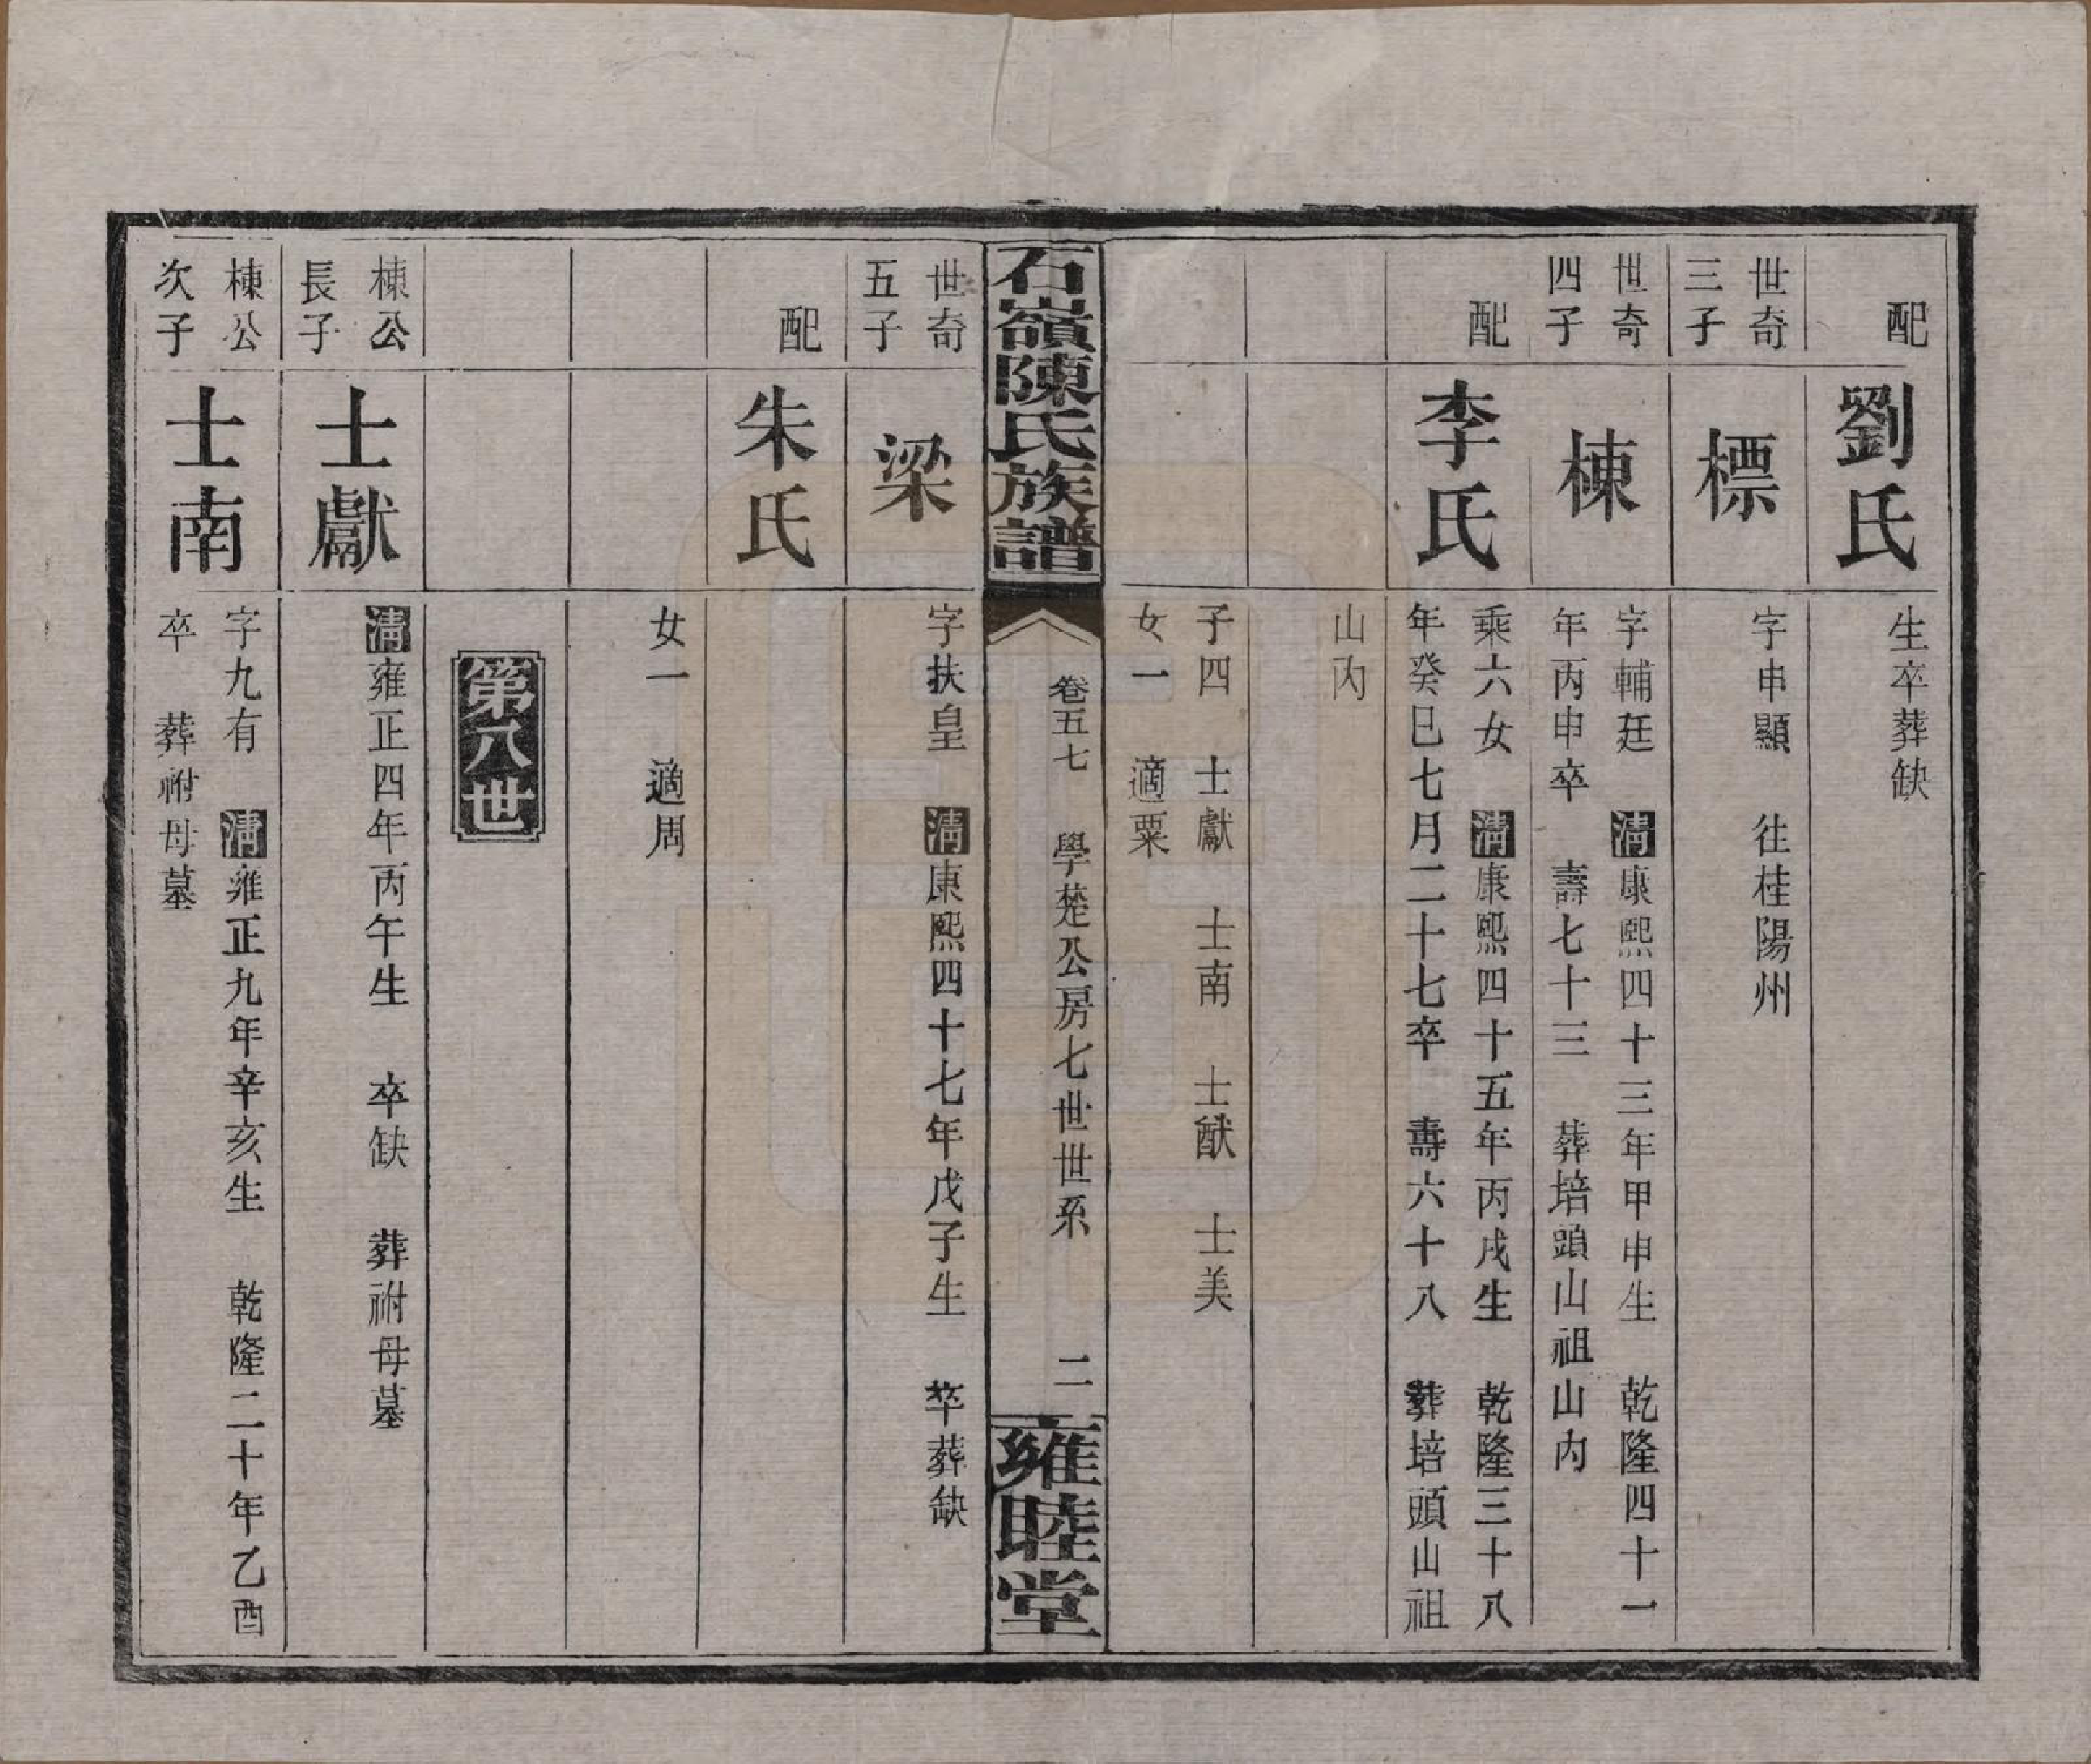 配
劉氏
生卒葬缺
世奇
三子
標
字申顯　往桂陽州
世奇
四子
棟
字輔廷　清康熙四十三年甲申生　乾隆四十一
年丙申卒　壽七十三　葬培頭山祖山内
配
李氏
乘六女　清康熙四十五年丙戌生　乾隆三十八
年癸巳七月二十七卒　壽六十八　葬培頭山祖
山内
子四　士獻　士南　士猷　士美
女一　適粟
石嶺陳氏族譜
卷五七　學楚公房七世世系　二
雍睦堂
世奇
五子
梁
字扶皇　清康熙四十七年戊子生　卒葬缺
配
朱氏
女一　適周
第八世
棟公
長子
士獻
清雍正四年丙午生　卒缺　葬祔母墓
棟公
次子
士南
字九有　清雍正九年辛亥生　乾隆二十年乙酉
卒　葬祔母墓